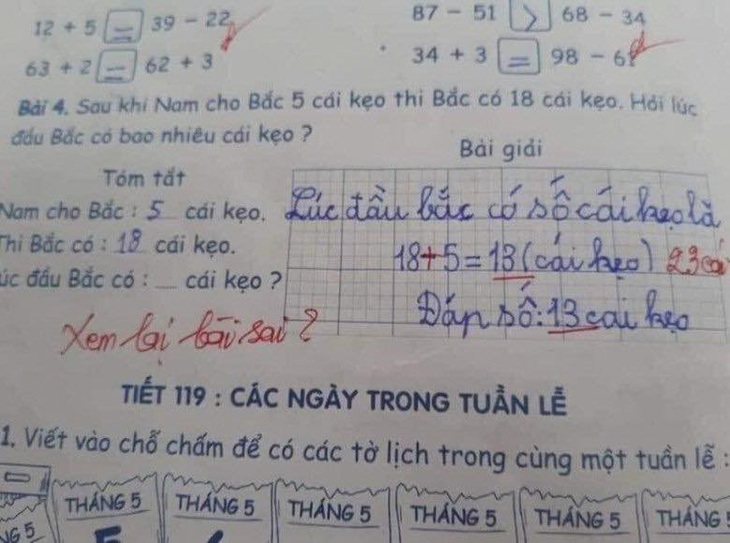 12 + 5 = 39 - 22
87 - 51 > 68 - 34
63 + 2 = 62 + 3
34 + 3 = 98 - 61
Bài 4. Sau khi Nam cho Bắc 5 cái kẹo thì Bắc có 18 cái kẹo. Hỏi lúc
đầu Bắc có bao nhiêu cái kẹo ?
Tóm tắt
Bài giải
Nam cho Bắc : 5 cái kẹo.
Lúc đầu bắc có số cái kẹo là
Thì Bắc có : 18 cái kẹo.
18+5=13 (cái kẹo) 23 cái
úc đầu Bắc có : __ cái kẹo ?
Đáp số: 13 cái kẹo
Xem lại bài sai ?
TIẾT 119 : CÁC NGÀY TRONG TUẦN LỄ
1. Viết vào chỗ chấm để có các tờ lịch trong cùng một tuần lễ :
NG 5 THÁNG 5 THÁNG 5 THÁNG 5 THÁNG 5 THÁNG 5 THÁNG 5